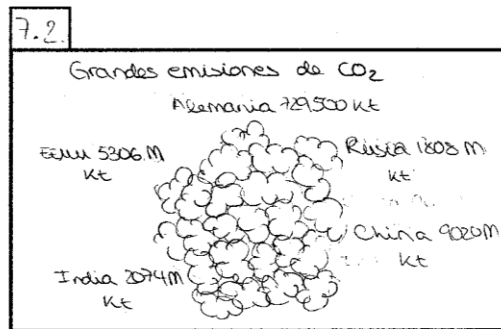 7.2.
Grandes emisiones de CO2
Alemania 729,500 Kt
EEUU 5306 M
Kt
Rusia 1808 M
Kt
China 9020 M
Kt
India 2074 M
Kt